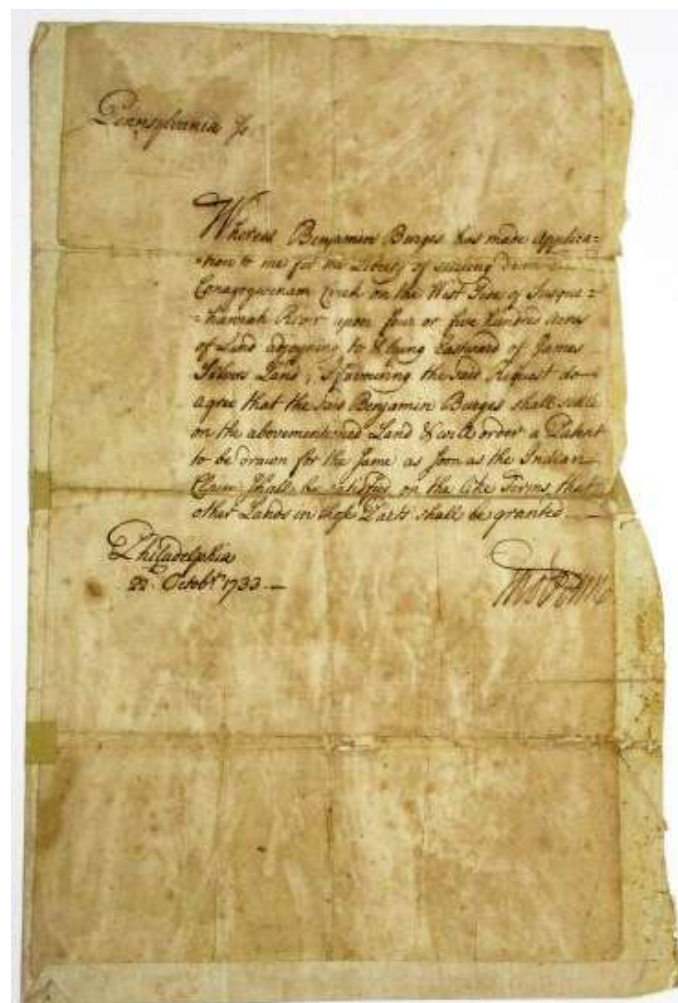 Pennsylvania ss
Whereas Benjamin Burges has made Applica=
=tion to me for the Liberty of settling
on the West Side of Susque=
=hannah River upon four or five hundred Acres
of Land adjoyning to & lying Eastward of James
Silvers Land, I favouring the said Request do
agree that the said Benjamin Burges shall settle
on the abovementioned Land & will order a Patent
to be drawn for the same as soon as the Indian
Claim shall be satisfied on the like Terms that
other Lands in those Parts shall be granted
Philadelphia
22 Octobr 1733
Tho Penn